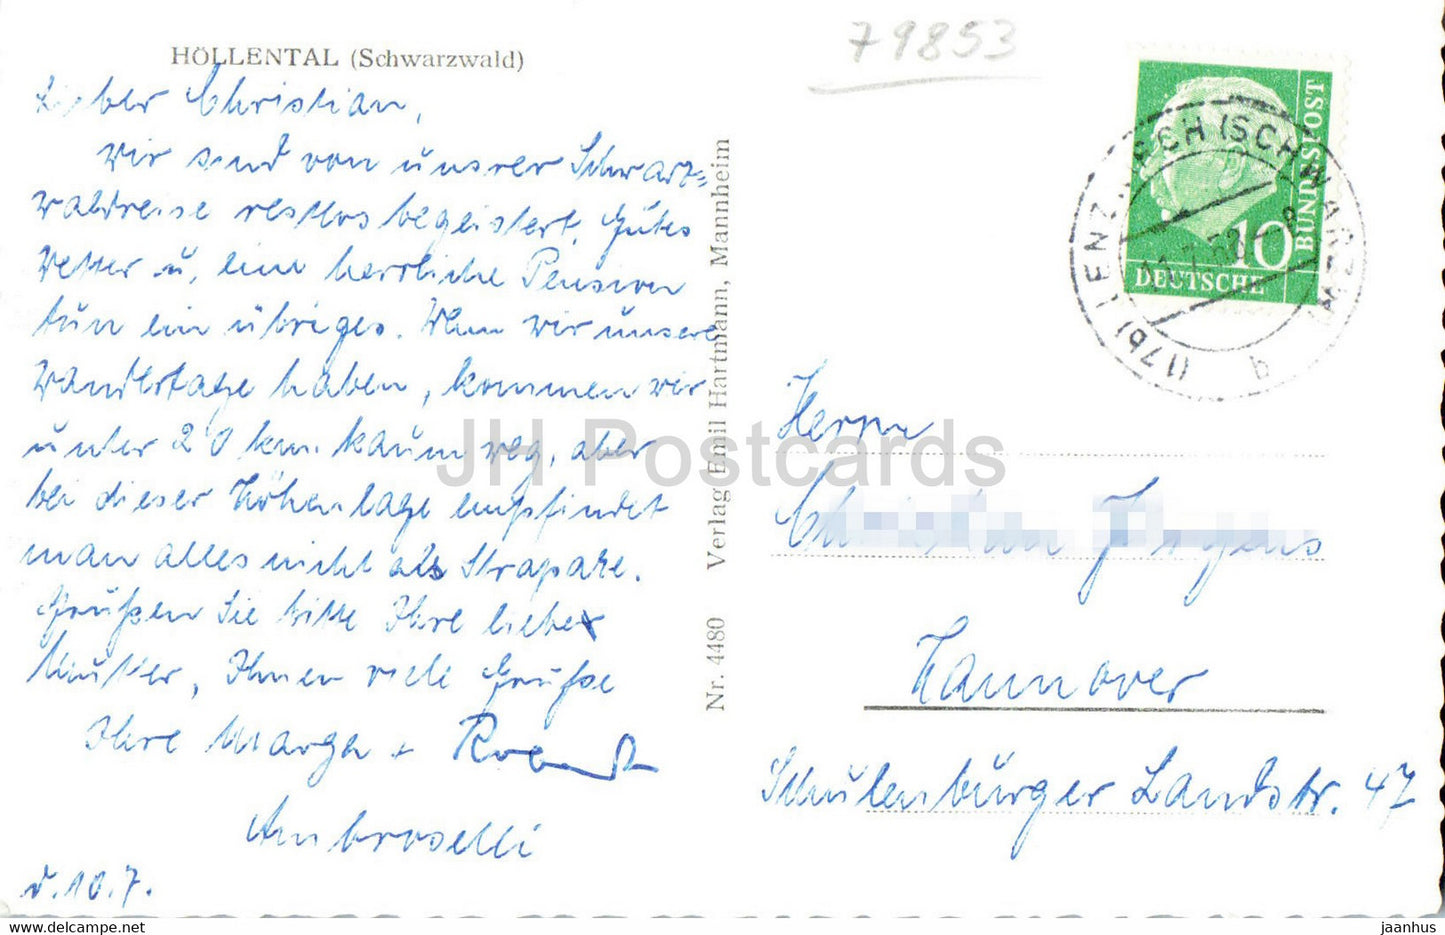 79853
HÖLLENTAL (Schwarzwald)
Lieber Christian,
wir sind von unsrer Schwarz=
waldreise restlos begeistert. Gutes
Wetter u. eine herrliche Pension
tun ein übriges. Wenn wir unsere
Wandertage haben, kommen wir
unter 20 km. kaum weg, aber
bei dieser Höhenlage empfindet
man alles nicht als Strapaze.
Grüßen Sie bitte Ihre liebe
Mutter, Ihnen viele Grüße
Ihre Marga +
Ambroselli
d. 10.7.
Nr. 4480 Verlag Emil Hartmann, Mannheim
DEUTSCHE BUNDESPOST
10
(17b) LENZKIRCH (SCHWARZW)
b
Herrn
Hannover
Schulenburger Landstr. 47
JH Postcards
delcampe.net
jaanhus